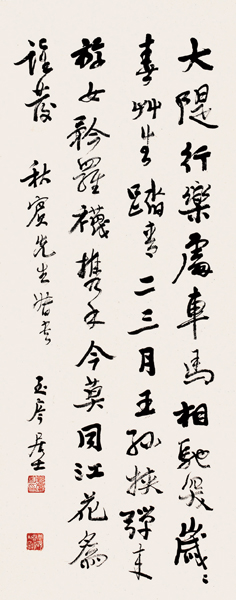 大隄行樂處車馬相馳突歲〻
春艸生踏青二三月王孫挾彈
游女矜羅襪攜手今莫同江花為
誰發 秋賓先生
玉岑居士